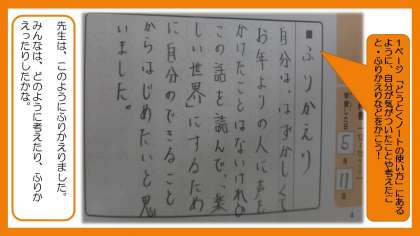 1ページ「どうとくノートの使い方」にある
ように、自分が気がついたことや考えたこ
と・ふりかえりなどをかこう!
学習した日
5
月
11
日
■ふりかえり
自分は、はずかしくて
お年よりの人に声を
かけたことはないけれど
この話を読んで、楽
しい世界にするため
に自分のできること
からはじめたいと思
いました。
4
先生は、このようにふりかえりました。
みんなは、どのように考えたり、ふりか
えったりしたかな。